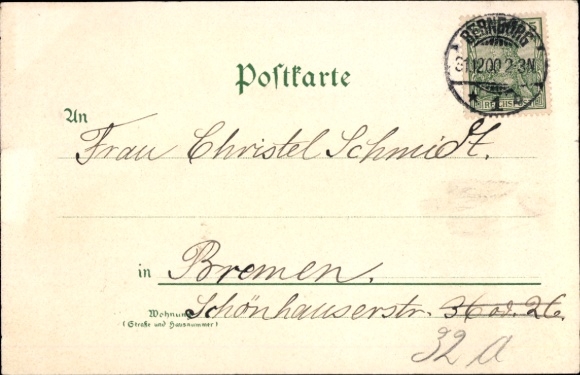 BERNBURG
31.12.00 2-3N.
* 1
REICHSPOST
Postkarte
An
Frau Christel Schmidt.
in Bremen.
Wohnung Schönhauserstr. 36 od. 26.
(Straße und Hausnummer)
32 a